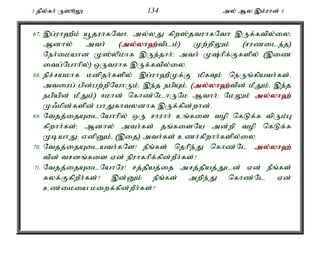 3 தில்கர் ருஸூலு 134 அல் ஆல இம்ரான் 3
67. இப்ராஹீம் யூதராகவோ, அல்லது கிறஸ்தவராகவோ இருக்கவில்லை;
ஆனால் அவர் (அல்லாஹ்விடம்) முற்றிலும் (சரணடைந்த)
நேர்மையான முஸ்லிமாக இருந்தார்; அவர் முஷ்ரிக்குகளில் (இணை
வைப்போரில்) ஒருவராக இருக்கவில்லை.
68. நிச்சயமாக மனிதர்களில் இப்ராஹீமுக்கு மிகவும் நெருங்கியவர்கள்,
அவரைப் பின்பற்றியோரும், இந்த நபியும், (அல்லாஹ்வின் மீதும், இந்த
நபியின் மீதும்) ஈமான் கொண்டோருமே ஆவார்; மேலும் அல்லாஹ்
முஃமின்களின் பாதுகாவலனாக இருக்கின்றான்.
69. வேதத்தையுடையோரில் ஒரு சாரார் உங்களை வழி கெடுக்க விரும்பு
கிறார்கள்; ஆனால் அவர்கள் தங்களையே அன்றி வழி கெடுக்க
முடியாது; எனினும், (இதை) அவர்கள் உணர்கிறார்களில்லை.
70. வேதத்தையுடையவர்களே! நீங்கள் தெரிந்து கொண்டே அல்லாஹ்
வின் வசனங்களை ஏன் நிராகரிக்கின்றீர்கள்?
71. வேதத்தையுடையோரே! சத்தியத்தை அசத்தியத்துடன் ஏன் நீங்கள்
கலக்குகிறீர்கள்? இன்னும் நீங்கள் அறிந்து கொண்டே ஏன்
உண்மையை மறைக்கின்றீர்கள்?